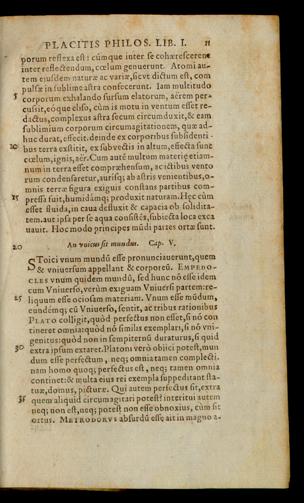 PLACITIS PHILOS. LIB. I. 11
porum reflexa est: cúmque inter se cohærescerent
inter reflectendum, cœlum genuerunt. Atomi au-
tem eiusdem naturæ ac variæ, sicvt dictum est, com
pulsæ in sublime astra confecerunt. Iam multitudo
5 corporum exhalando sursum elatorum, aërem per-
cussit, eóque eliso, cùm is motu in ventum esset re-
dactus, complexus astra secum circumduxit, & eam
sublimium corporum circumagitationem, quæ ad-
huc durat, effecit. deinde ex corporibus subsidenti-
10 bus terra exstitit, ex subvectis in altum, effecta sunt
cœlum, ignis, aër. Cum autē multum materię etiam-
num in terra esset compræhensum, ac ictibus vento
rum condensaretur, aurisq; ab astris venientibus, o-
mnis terræ figura exiguis constans partibus com-
15 pressa fuit, humidámq; produxit naturam. Hęc cùm
esset fluida, in caua defluxit & capacia eb solidita-
tem. aut ipsa per se aqua consistēs, subiecta loca exca
uauit. Hoc modo principes mūdi partes ortæ sunt.
20 An vnicus sit mundus. Cap. V.
STOici vnum mundū esse pronunciauerunt, quem
& vniuersum appellant & corporeū. EMPEDO-
CLES vnum quidem mundū, sed hunc nō esse idem
cum Vniuerso, verùm exiguam Vniuersi partem: re-
25 liquum esse ociosam materiam. Vnum esse mūdum,
eundémq; cū Vniuerso, sentit, ac tribus rationibus
PLATO colligit, quòd perfectus non esset, si nō con
tineret omnia: quòd nō similis exemplari, si nō vni-
genitus: quòd non in sempiternū duraturus, si quid
30 extra ipsum extaret. Platoni verò obiici potest, mun
dum esse perfectum, neq; omnia tamen complecti.
nam homo quoq; perfectus est, neq; tamen omnia
continet: & multa eius rei exempla suppeditant sta-
tuæ, domus, picturæ. Qui autem perfectus sit, extra
35 quem aliquid circumagitari potest? interitui autem
neq; non est, neq; potest non esse obnoxius, cùm sit
ortus. METRODORVS absurdū esse ait in magno a-